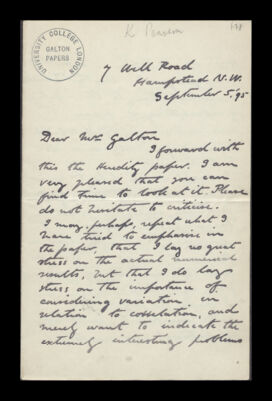 K Pearson
UNIVERSITY COLLEGE LONDON
GALTON
PAPERS
7 Well Road
Hampstead N.W.
September 5, 95
Dear Mr Galton
I forward with
this the Heredity paper. I am
very pleased that you can
find time to look at it. Please
do not hesitate to criticise.
I may, perhaps, repeat what I
have tried to emphasise in
the paper, that I lay no great
stress on the actual numerical
results, but that I do lay
stress on the importance of
considering variation in
relation to correlation, and
merely want to indicate the
extremely interesting problems